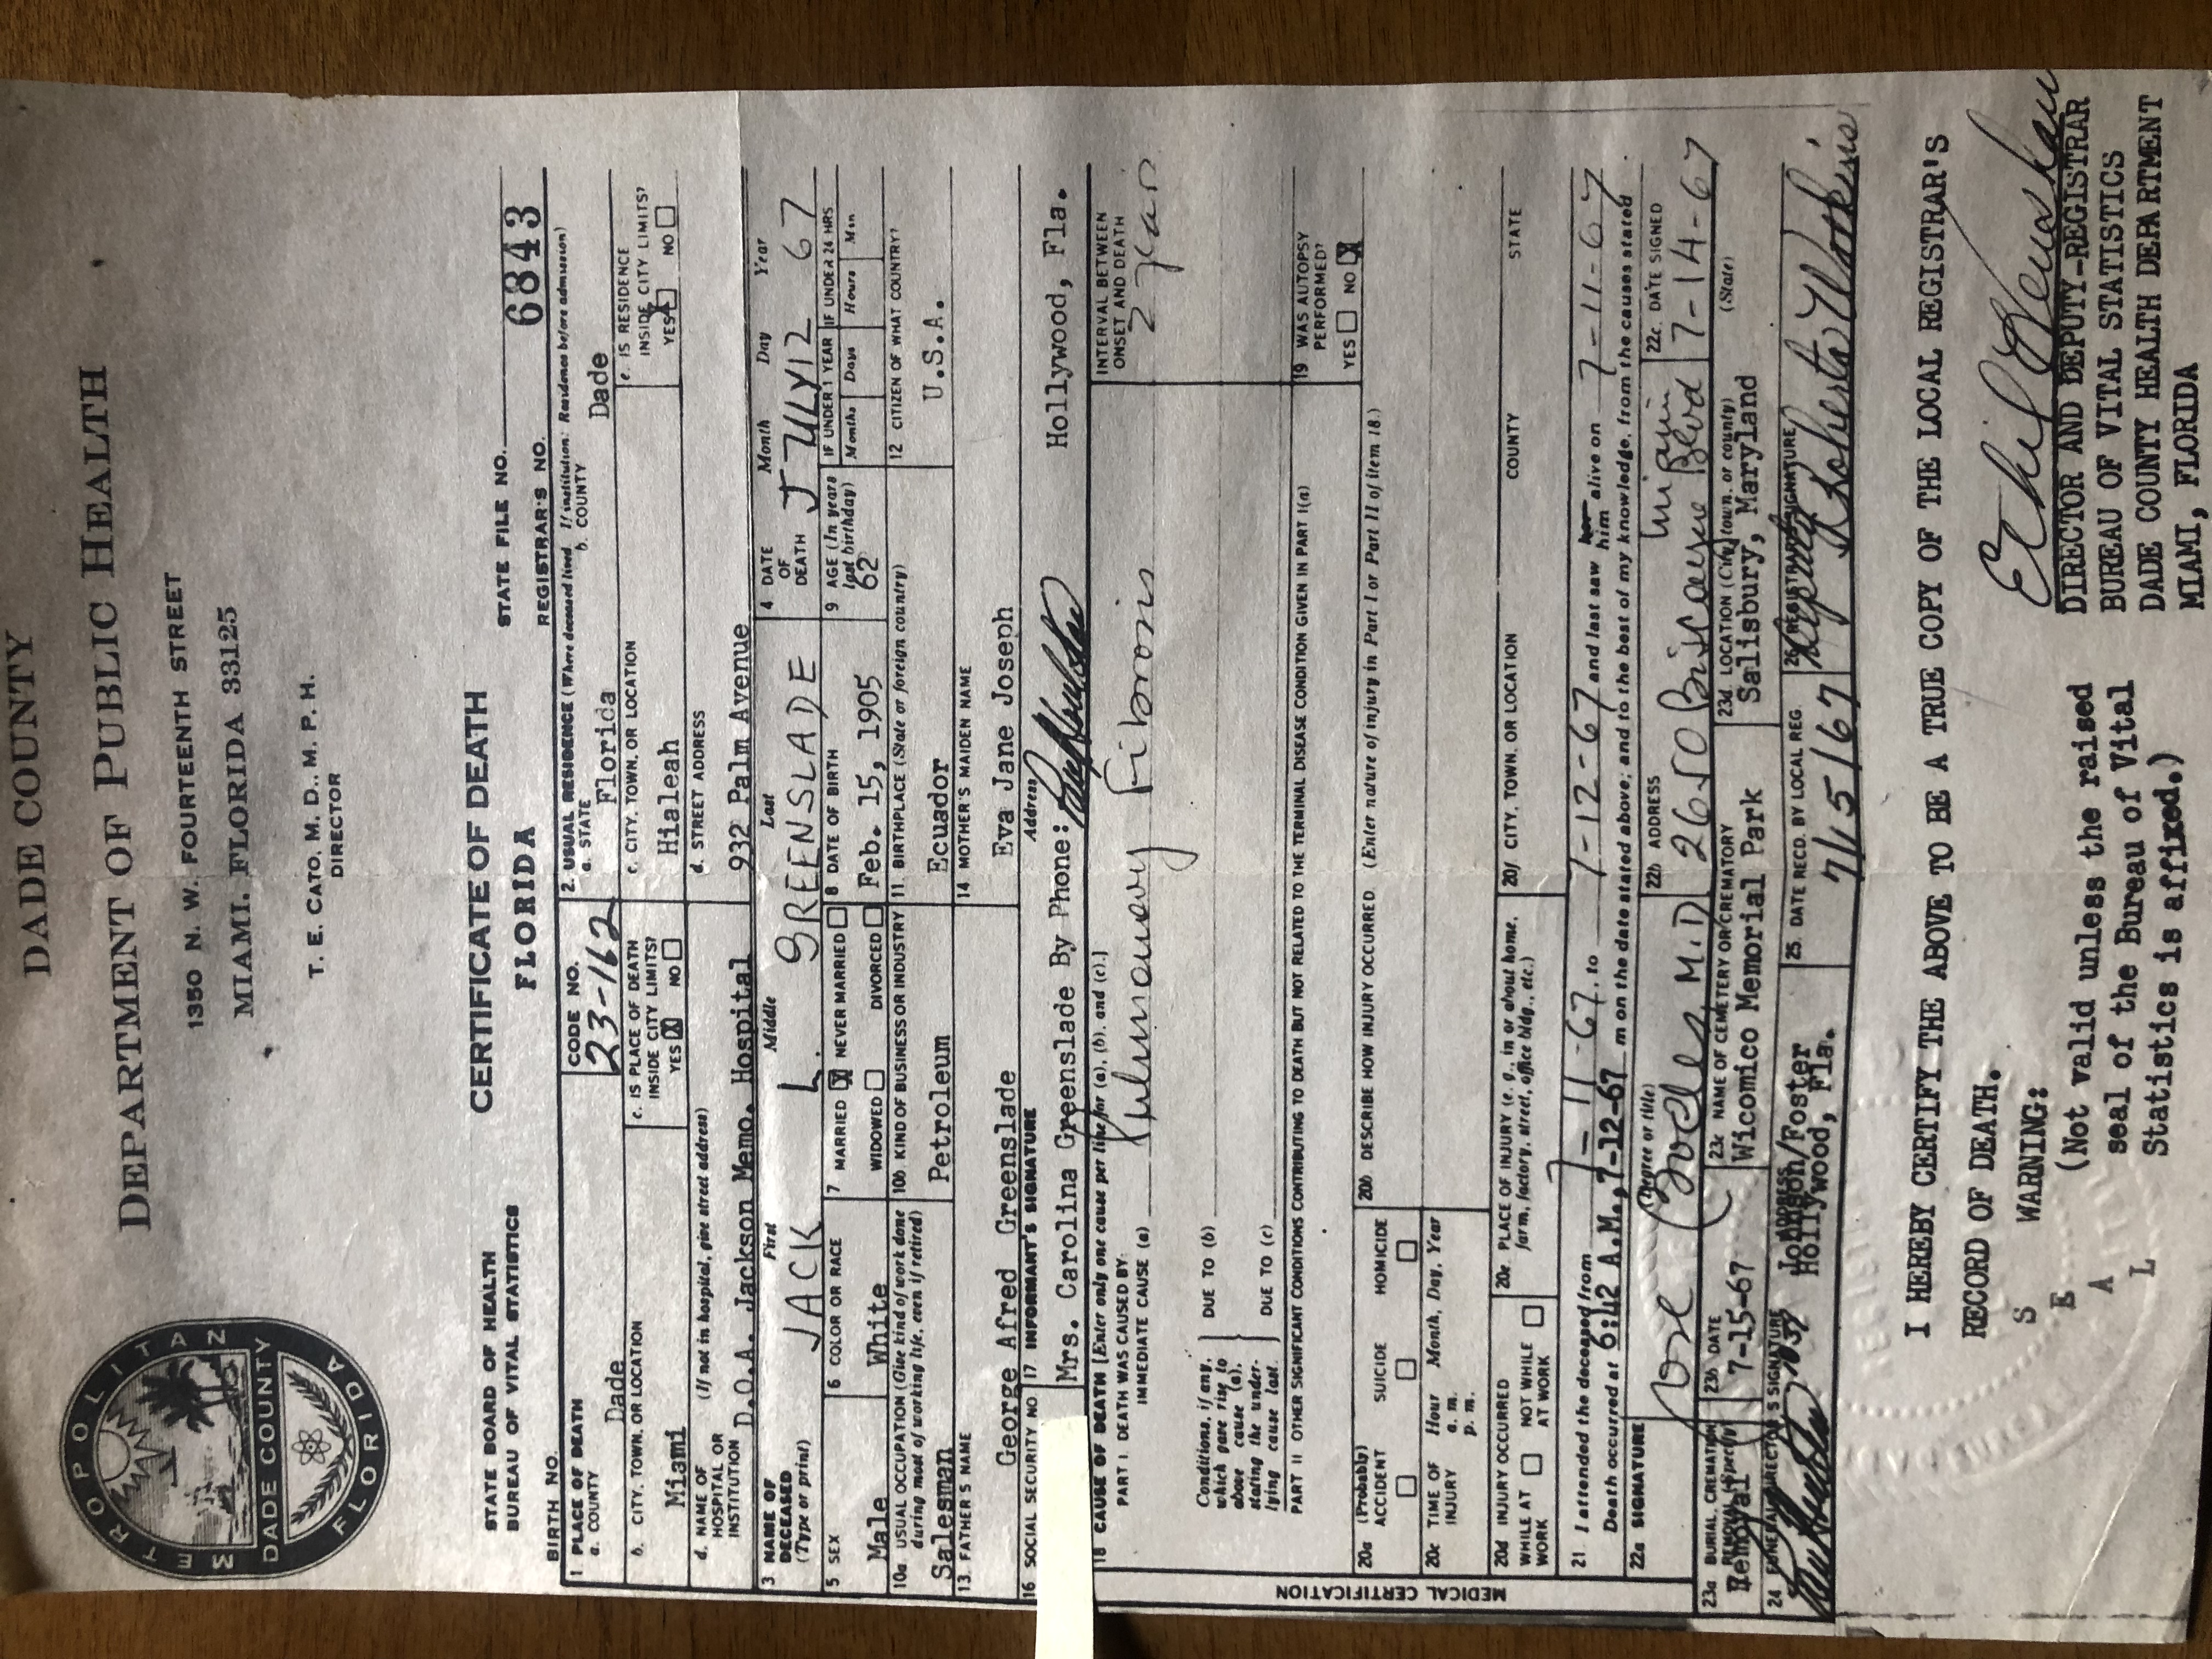 DADE COUNTY
DEPARTMENT OF PUBLIC HEALTH
1350 N. W. FOURTEENTH STREET
MIAMI, FLORIDA 33125
T. E. CATO, M. D., M. P. H.
DIRECTOR
METROPOLITAN
DADE COUNTY
FLORIDA
STATE BOARD OF HEALTH
BUREAU OF VITAL STATISTICS
CERTIFICATE OF DEATH
FLORIDA
STATE FILE NO.
REGISTRAR'S NO. 6843
BIRTH NO.
1. PLACE OF DEATH
a. COUNTY
Dade
CODE NO.
23-162
2. USUAL RESIDENCE (Where deceased lived. If institution: Residence before admission)
a. STATE
Florida
b. COUNTY
Dade
b. CITY, TOWN, OR LOCATION
Miami
c. IS PLACE OF DEATH
INSIDE CITY LIMITS?
YES X NO
c. CITY, TOWN, OR LOCATION
Hialeah
e. IS RESIDENCE
INSIDE CITY LIMITS?
YES X NO
d. NAME OF (If not in hospital, give street address)
HOSPITAL OR
INSTITUTION D.O.A. Jackson Memo. Hospital
d. STREET ADDRESS
932 Palm Avenue
3. NAME OF First Middle Last
DECEASED
(Type or print) JACK L. GREENSLADE
4 DATE Month Day Year
OF
DEATH JULY 12 67
5 SEX
Male
6 COLOR OR RACE
White
7 MARRIED X NEVER MARRIED
WIDOWED DIVORCED
8 DATE OF BIRTH
Feb. 15, 1905
9 AGE (In years
last birthday)
62
IF UNDER 1 YEAR IF UNDER 24 HRS
Months Days Hours Min
10a. USUAL OCCUPATION (Give kind of work done
during most of working life, even if retired)
Salesman
10b. KIND OF BUSINESS OR INDUSTRY
Petroleum
11. BIRTHPLACE (State or foreign country)
Ecuador
12 CITIZEN OF WHAT COUNTRY?
U.S.A.
13. FATHER'S NAME
George Afred Greenslade
14 MOTHER'S MAIDEN NAME
Eva Jane Joseph
16 SOCIAL SECURITY NO
17 INFORMANT'S SIGNATURE Address
Mrs. Carolina Greenslade By Phone: Hollywood, Fla.
18 CAUSE OF DEATH [Enter only one cause per line for (a), (b), and (c).]
PART I. DEATH WAS CAUSED BY:
IMMEDIATE CAUSE (a) Pulmonary Fibrosis
INTERVAL BETWEEN
ONSET AND DEATH
2 years
Conditions, if any,
which gave rise to
above cause (a),
stating the under-
lying cause last.
DUE TO (b)
DUE TO (c)
PART II OTHER SIGNIFICANT CONDITIONS CONTRIBUTING TO DEATH BUT NOT RELATED TO THE TERMINAL DISEASE CONDITION GIVEN IN PART I(a)
19 WAS AUTOPSY
PERFORMED?
YES NO X
MEDICAL CERTIFICATION
20a (Probably)
ACCIDENT SUICIDE HOMICIDE
20b. DESCRIBE HOW INJURY OCCURRED. (Enter nature of injury in Part I or Part II of item 18.)
20c TIME OF Hour Month, Day, Year
INJURY a. m.
p. m.
20d INJURY OCCURRED
WHILE AT NOT WHILE
WORK AT WORK
20e. PLACE OF INJURY (e. g., in or about home,
farm, factory, street, office bldg., etc.)
20f. CITY, TOWN, OR LOCATION COUNTY STATE
21. I attended the deceased from 7-11-67, to 7-12-67 and last saw her him alive on 7-11-67
Death occurred at 6:42 A.M., 7-12-67 m on the date stated above; and to the best of my knowledge, from the causes stated
22a SIGNATURE (Degree or title)
Jose M.D
22b ADDRESS
Miami
2650 Biscayne Blvd
22c. DATE SIGNED
7-14-67
23a BURIAL, CREMATION,
REMOVAL (Specify)
Removal
23b DATE
7-15-67
23c NAME OF CEMETERY OR CREMATORY
Wicomico Memorial Park
23d. LOCATION (City, town, or county) (State)
Salisbury, Maryland
24 FUNERAL DIRECTOR'S SIGNATURE ADDRESS
1039
Johnson/Foster
Hollywood, Fla.
25. DATE RECD. BY LOCAL REG.
7/15/67
26 REGISTRAR'S SIGNATURE
Deputy
Roberta Watkins
I HEREBY CERTIFY THE ABOVE TO BE A TRUE COPY OF THE LOCAL REGISTRAR'S
RECORD OF DEATH.
SEAL
WARNING:
(Not valid unless the raised
seal of the Bureau of Vital
Statistics is affixed.)
Ethel Henshaw
DIRECTOR AND DEPUTY-REGISTRAR
BUREAU OF VITAL STATISTICS
DADE COUNTY HEALTH DEPARTMENT
MIAMI, FLORIDA